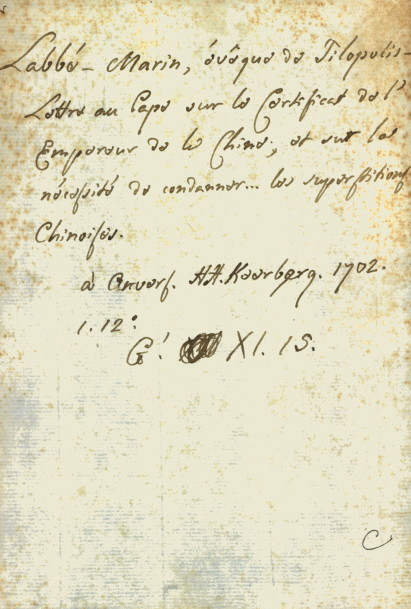 Labbé - Marin, évêque de Tilopolis -
Lettre au Pape sur le Certificat de l'
Empereur de la Chine, et sur la
nécessité de condanner... les superstitions
Chinoises.
à Anvers. HH. Keerberg. 1702.
1. 12°.
G! XI. 15.
C